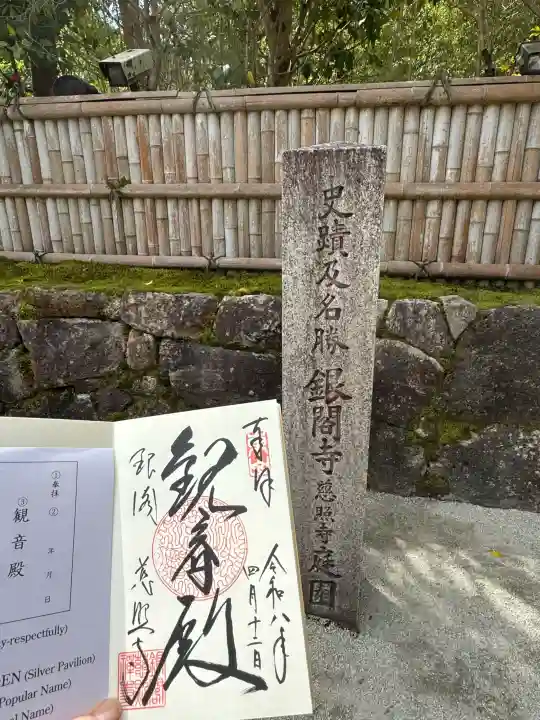 史蹟及名勝 銀閣寺 慈照寺 庭園
奉拝
令和八年
四月十二日
観音殿
銀閣 慈照寺
①奉拝 ② 年 月 日
③観音殿
y-respectfully)
DEN (Silver Pavilion)
Popular Name)
l Name)